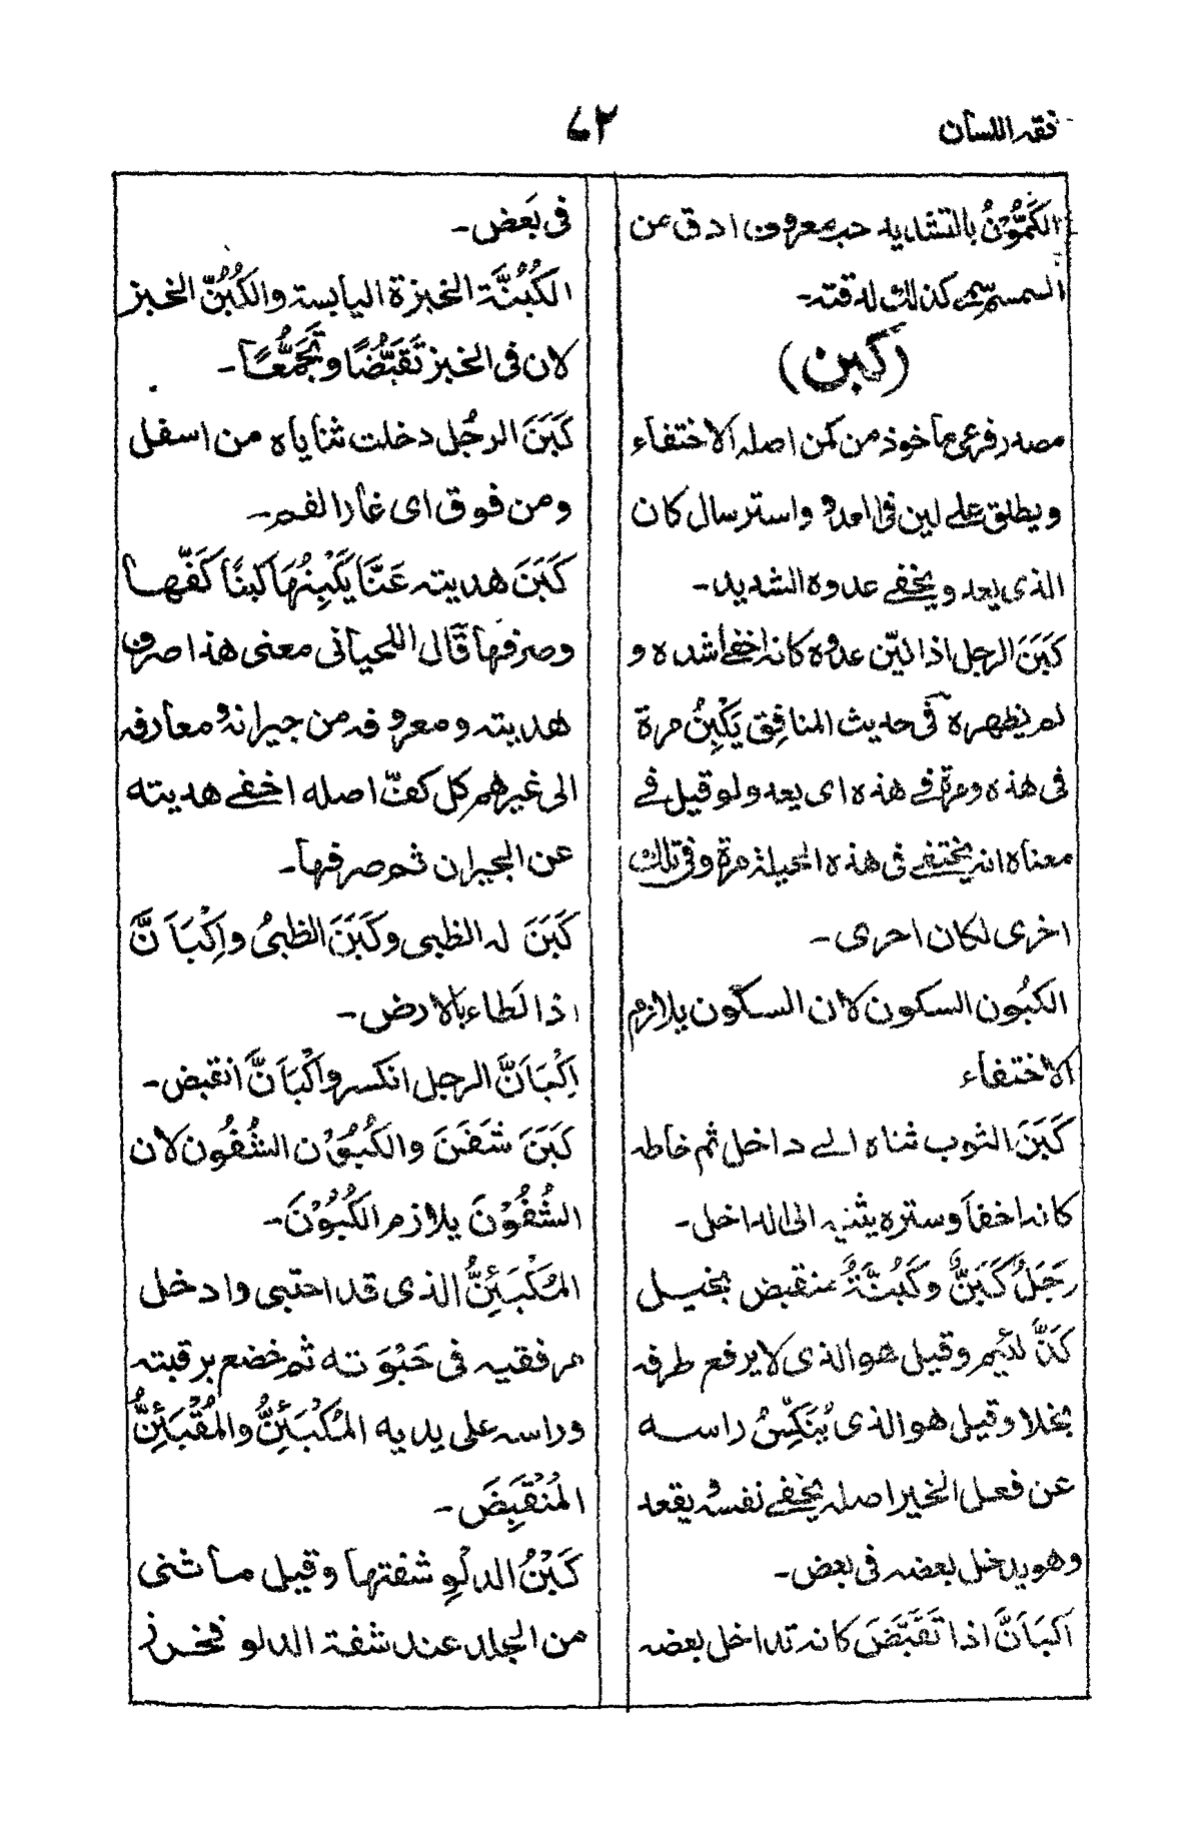 فقه اللسان
٧٢
الكَمُّوْنُ بالتشديد حب معروف ادق من
السمسم سمى كذلك لدقته۔
(كبن)
مصدر فرعى مأخوذ من كمن اصله الاختفاء
ويطلق على لين فى العدو واسترسال كان
الذى يعدو يخفى عدوه الشديد۔
كَبَنَ الرجل اذا ليّن عدوه كانه اخفى اشده و
لم يظهره فى حديث المنافِق يَكْبِنُ مرة
فى هذه ومرة فى هذه اى يعدو ولو قيل فى
معناه انه يختفى فى هذه الحيلة مرة وفى تلك
اخرى لكان احرى۔
الكبُون السكون لان السكون يلازم
الاختفاء
كَبَنَ الثوب ثناه الى داخل ثم خاطه
كانه اخفاه وستره يثنيه الى الداخل۔
رَجَلٌ كَبَنٌّ وكَبُنَّةٌ منقبض بخيل
كَنٌّ لئيم وقيل هو الذى لا يرفع طرفه
بخلا وقيل هو الذى يُنَكِّسُ راسه
عن فعل الخير اصله يخفى نفسه يقعد
وهو يدخل بعضه فى بعض۔
اكبَاَنَّ اذا تَقَبَّضَ كانه تداخل بعضه
فى بَعَض۔
الكُبُنَّة الخبزة اليابسة والكُبُنّ الخبز
لان فى الخبز تَقَبُّضًا وتَجَمُّعًا۔
كَبَنَ الرجُل دخلت ثناياه من اسفل
ومن فوق اى غار الفم۔
كَبَنَ هديته عَنَّا يَكْبِنُهَا كبنًا كَفَّها
وصرفها قال اللحيانى معنى هذا صرف
هديته ومعروفه من جيرانه ومعارفه
الى غيرهم كل كفّ اصله اخفى هديته
عن الجيران ثم صرفها۔
كَبَنَ له الظبى وكَبَنَ الظبىُ واِكْبَاَنَّ
اذا لَطاء بالارض۔
اِكْبَاَنَّ الرجل انكسر واَكْبَاَنَّ انقبض۔
كَبَنَ شَفَنَ والكُبُوْن الشُفُون لان
الشُفُوْنَ يلازم الكُبُوْنَ۔
المُكْبَئِنُّ الذى قد احتبى وادخل
مرفقيه فى حَبْوَته ثم خضع برقبته
وراسه على يديه المُكْبَئِنُّ والمُقْبَئِنُّ
المُنْقَبِضَ۔
كَبْنُ الدلْوِ شفتها وقيل ما ثنى
من الجلد عند شفة الدلو فخرز